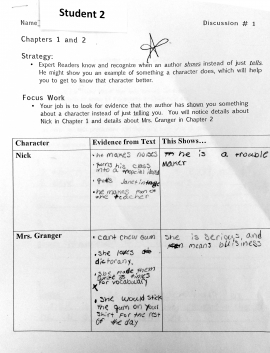 Student 2
Name
Discussion # 1
Chapters 1 and 2
Strategy:
• Expert Readers know and recognize when an author shows instead of just tells.
He might show you an example of something a character does, which will help
you to get to know that character better.
Focus Work
• Your job is to look for evidence that the author has shown you something
about a character instead of just telling you. You will notice details about
Nick in Chapter 1 and details about Mrs. Granger in Chapter 2
Character Evidence from Text This Shows...
Nick
• he makes noises
turns his class
into a tropical
• he makes
the teacher
he is a trouble
maker
Mrs. Granger
• cant chew gum
• she loves
dictorary,
• she made them
for vocabulary
• she would stick
the gum on your
shirt for the rest
of the day
she is serious, and
means buisiness